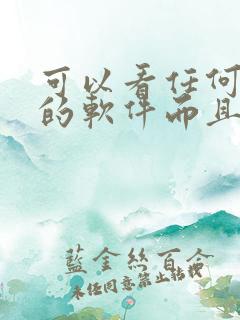 可以看任何
的軟件而且
藍金絲百合
未任同意禁止转载